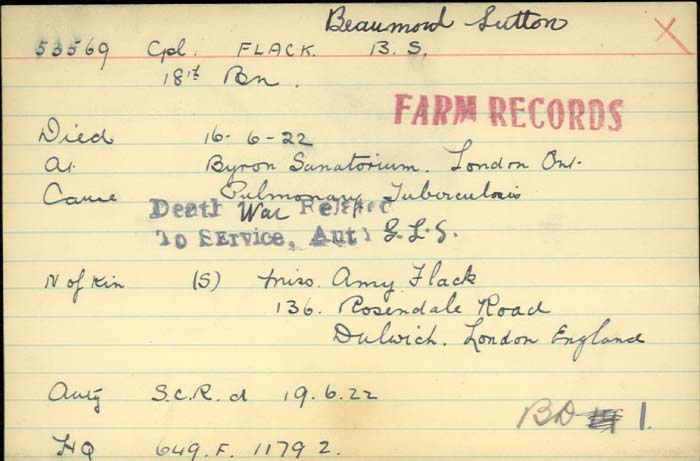 Beaumond Sutton
53569 Cpl. FLACK. B. S.
18th Bn.
FARM RECORDS
Died 16-6-22
At Byron Sanatorium. London Ont.
Cause Pulmonary Tuberculosis
Death War Related
To Service, Aut G.L.S.
N of Kin (S) Miss. Amy Flack
136. Rosendale Road
Dulwich. London England
Auty S.C.R. d 19.6.22
BD 1.
HQ 649. F. 11792.